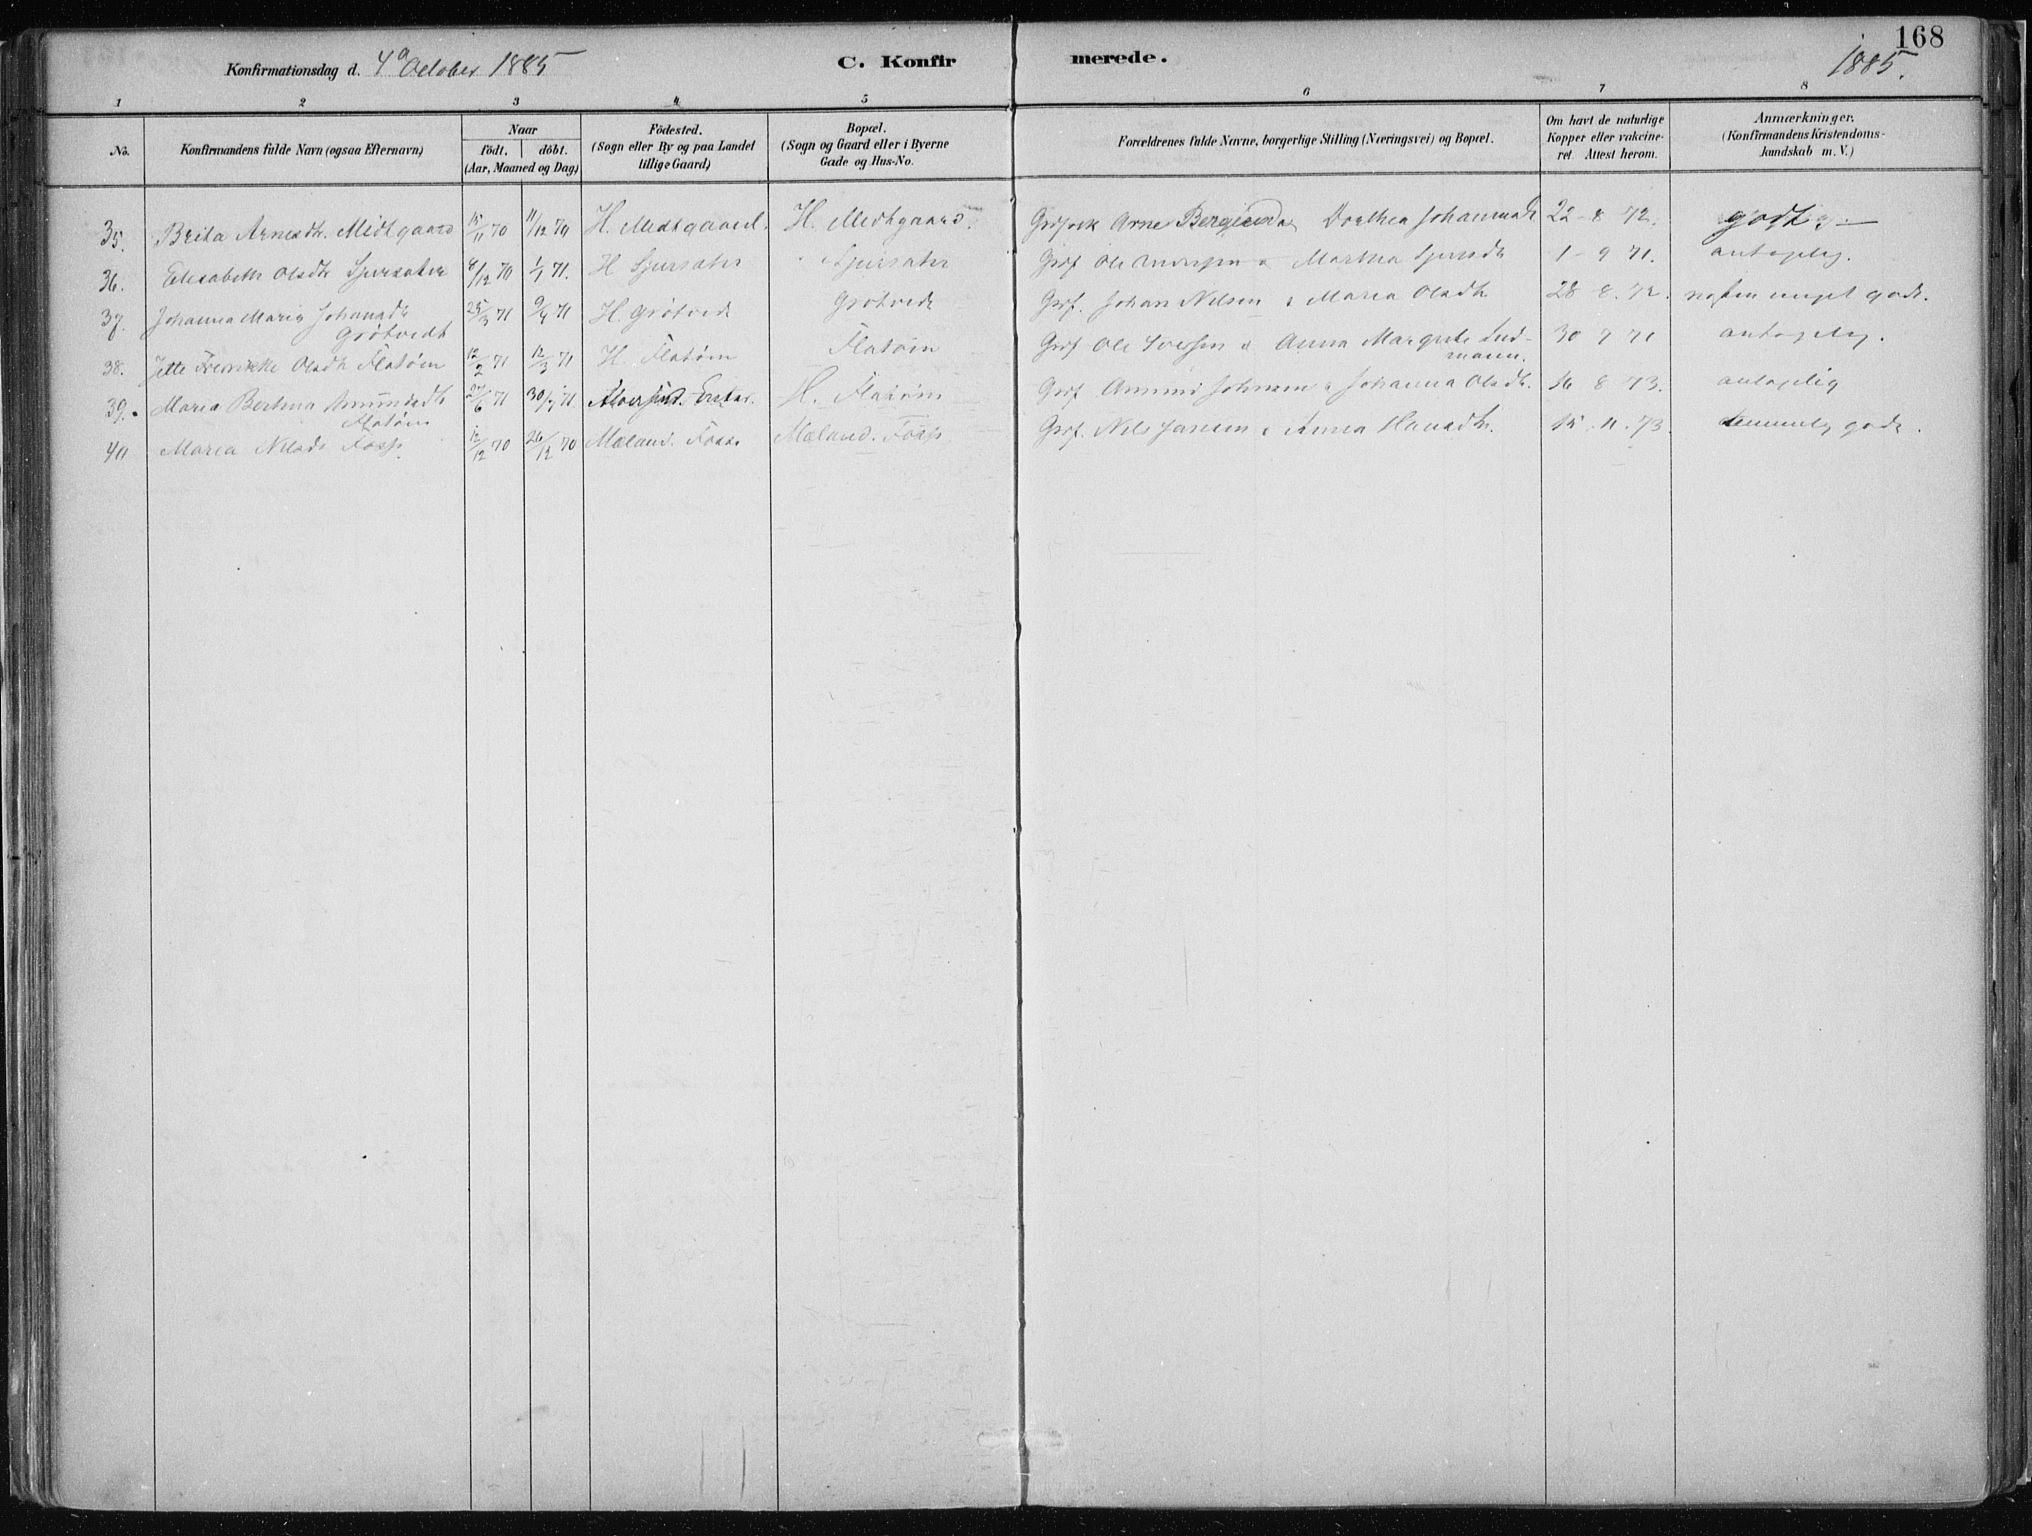 168
Konfirmationsdag d. 4de October 1885 C. Konfirmerede. 1885.
1 2 3 4 5 6 7 8
No.
Konfirmandens fulde Navn (ogsaa Efternavn)
Naar
født. døbt.
(Aar, Maaned og Dag)
Födested.
(Sogn eller By og paa Landet
tillige Gaard)
Bopæl.
(Sogn og Gaard eller i Byerne
Gade og Hus-No.
Forældrenes fulde Navne, borgerlige Stilling (Næringsvei) og Bopæl.
Om havt de naturlige
Kopper eller vakcine-
ret Attest herom.
Anmærkninger.
(Konfirmandens Kristendoms-
kundskab m. V.)
35. Brita Arnesdtr. Midtgaard 15/11 70 11/12 70 H. Midtgaard. H. Midtgaard. Grdfolk Arne Dorthea Johannesdt 22-8 72. godt
36. Elisabeth Olsdtr 8/12 70 1/1 71. H Grdf. Ole Martha 1-9 71. antagelig.
37. Johanna Maria Johansdtr 25/3 71 9/4 71 H. Grøtvedt Grøtvedt Grdf. Johan Nilsen & Maria Olsdtr 28 8. 72. næsten meget godt.
Grøtvedt
38. Jette Fredrikke Olsdtr Flatøen 12/2 71 12/3 71 H. Flatøen Flatøen Grdf Ole Iversen & Anna Margrete Lind- 30 7 71 antagelig.
mann.
39. Maria Bertina Amundsdtr 27/6 71 30/7 71 Alversund. H. Flatøen Grdf Amund Johnsen & Johanna Olsdtr. 16 8 73. antagelig
Flatøen
40 Maria Nilsdtr Foss 12/12 70 26/12 70 Mæland. Foss Mæland. Foss Grdf. Nils Jansen & Anna Hansdtr. 15. 11. 73. temmelig godt.